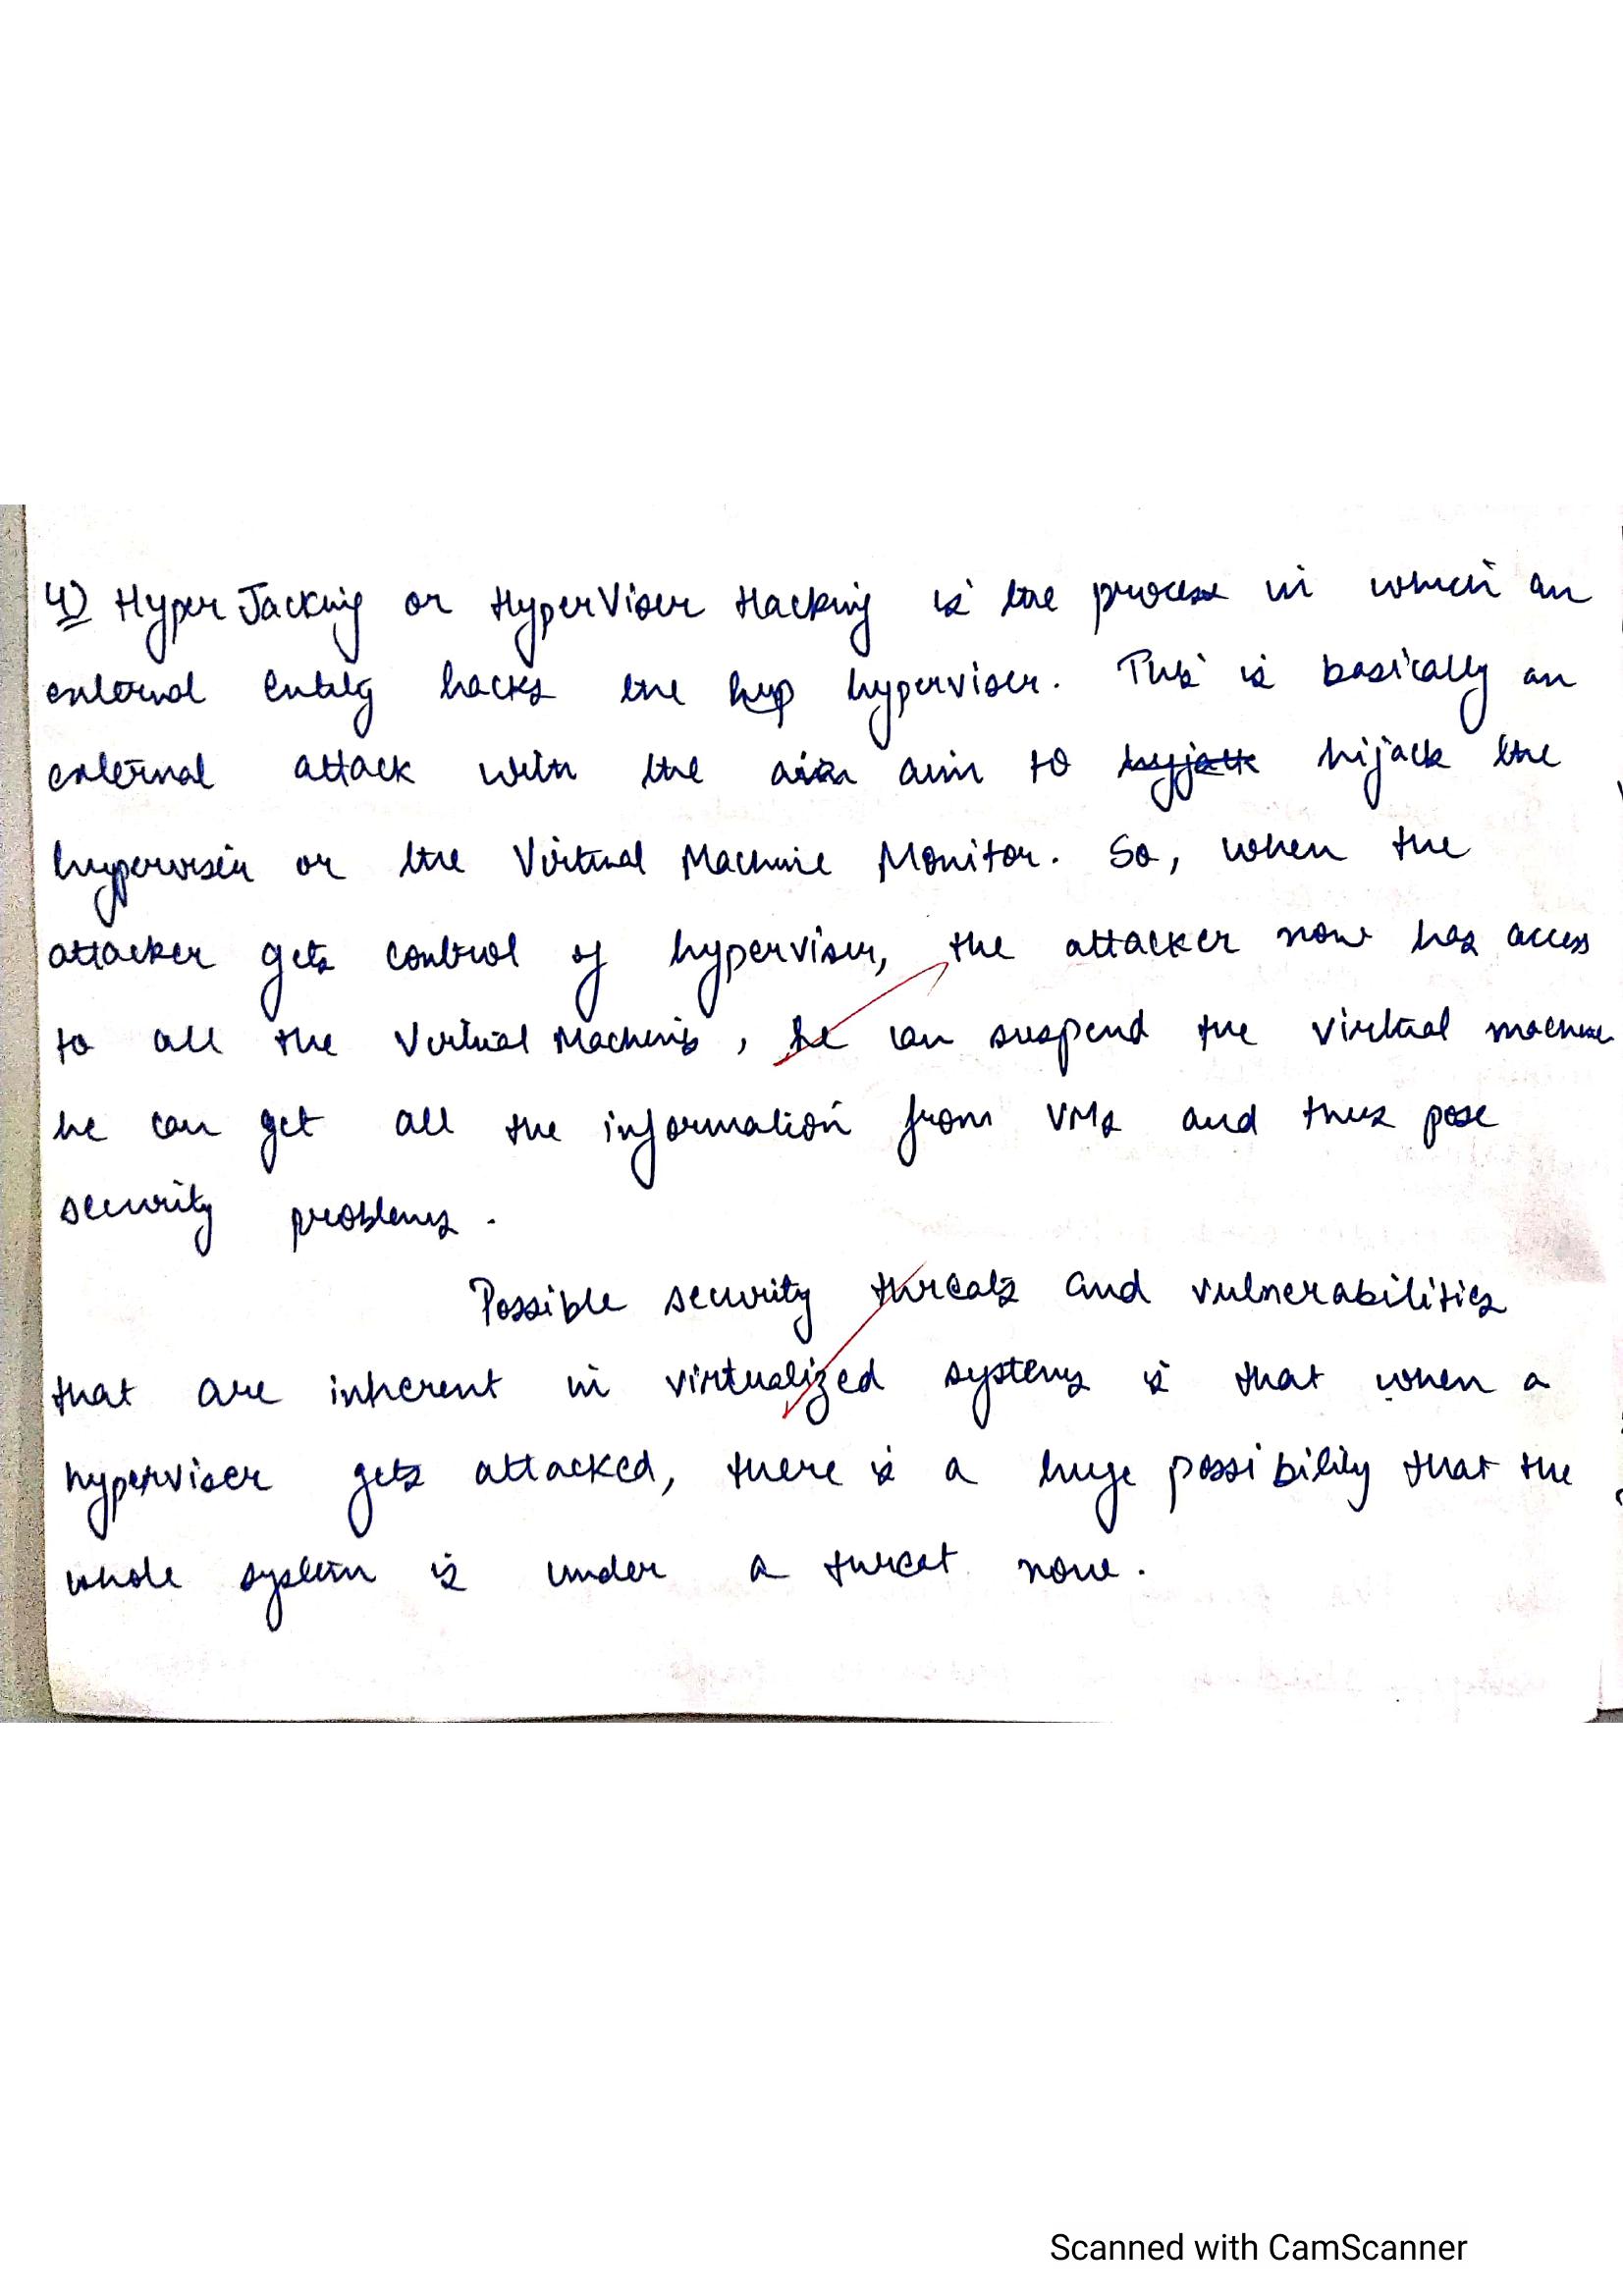 4) Hyper Jacking or HyperViser Hacking is the process in which an
external entity hacks the hyp hyperviser. This is basically an
external attack with the aim aim to hyjack hijack the
hyperviser or the Virtual Machine Monitor. So, when the
attacker gets control of hyperviser, the attacker now has access
to all the Virtual Machines, he can suspend the virtual machine
he can get all the information from VMs and thus pose
security problems.
Possible security threats and vulnerabilities
that are inherent in virtualized systems is that when a
hyperviser gets attacked, there is a huge possibility that the
whole system is under a threat now.
Scanned with CamScanner